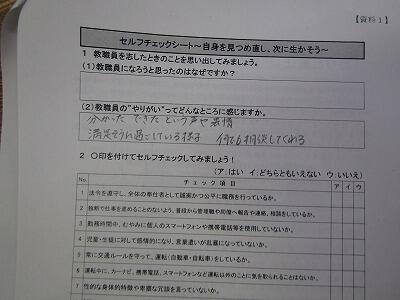 【資料１】
セルフチェックシート～自身を見つめ直し、次に生かそう～
１ 教職員を志したときのことを思い出してみましょう。
(1) 教職員になろうと思ったのはなぜですか？
(2) 教職員の“やりがい”ってどんなところに感じますか。
分かった できた という声や表情
満足そうに過ごしている様子 何でも相談してくれる
２ 〇印を付けてセルフチェックしてみましょう！
（ア：はい イ：どちらともいえない ウ：いいえ）
No. チェック項目 ア イ ウ
1 法令を遵守し、全体の奉仕者として誠実かつ公平に職務を行っているか。
2 独断で仕事を進めることのないよう、普段から管理職や同僚へ報告や連絡、相談をしているか。
3 勤務時間中、むやみに個人のスマートフォンや携帯電話等を使用していないか。
4 児童・生徒に対して感情的になり、言葉遣いが乱暴になっていないか。
5 常に交通ルールを守って、運転（自動車・自転車）をしているか。
6 運転中に、カーナビ、携帯電話、スマートフォンなど運転以外のことに気を取られることはないか。
7 性的な身体的特徴や卑猥な冗談を言っていないか。